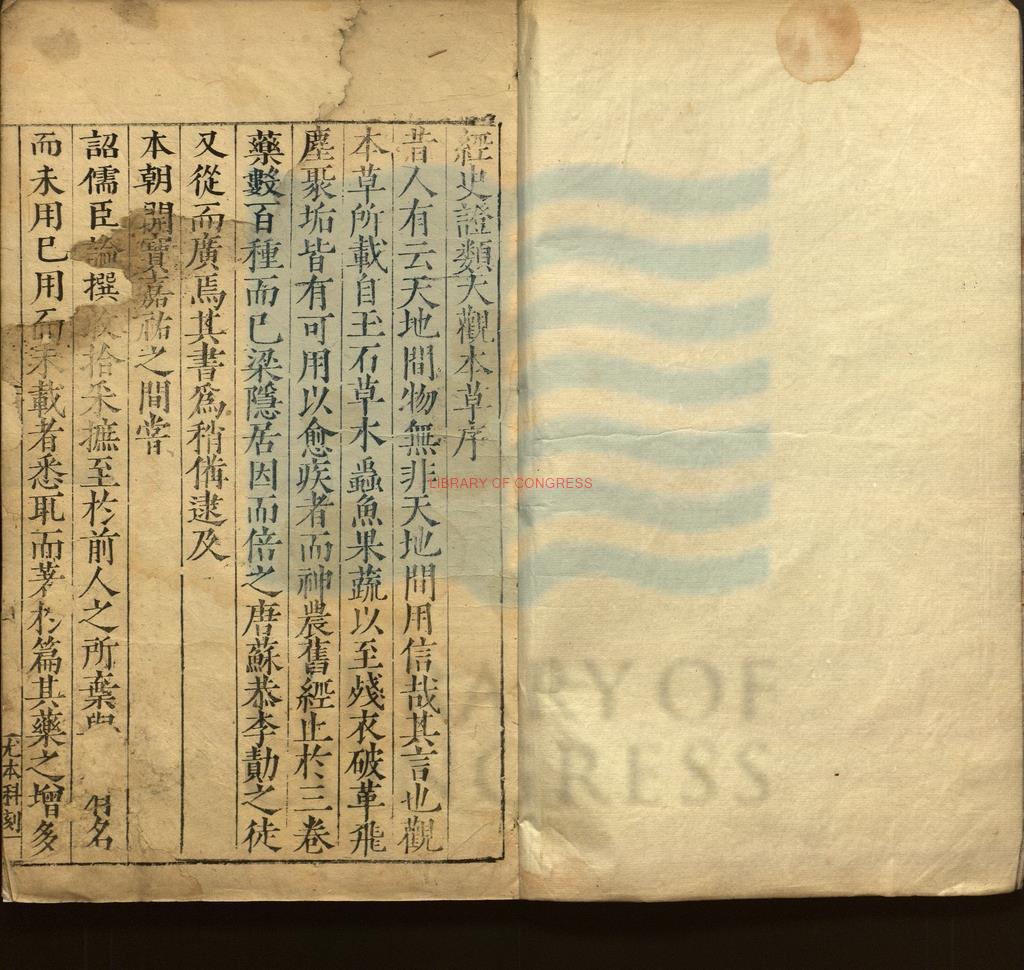 經史證類大觀本草序
昔人有云天地間物無非天地間用信哉其言也觀
本草所載自玉石草木蟲魚果蔬以至殘衣破革飛
塵聚垢皆有可用以愈疾者而神農舊經止於三卷
藥數百種而已梁隱居因而倍之唐蘇恭李勣之徒
又從而廣焉其書為稍備逮及
本朝開寶嘉祐之間嘗
詔儒臣論撰收拾采摭至於前人之所棄與 有名
而未用已用而未載者悉取而著於篇其藥之增多
尤本科刻
LIBRARY OF CONGRESS
ARY OF
GRESS